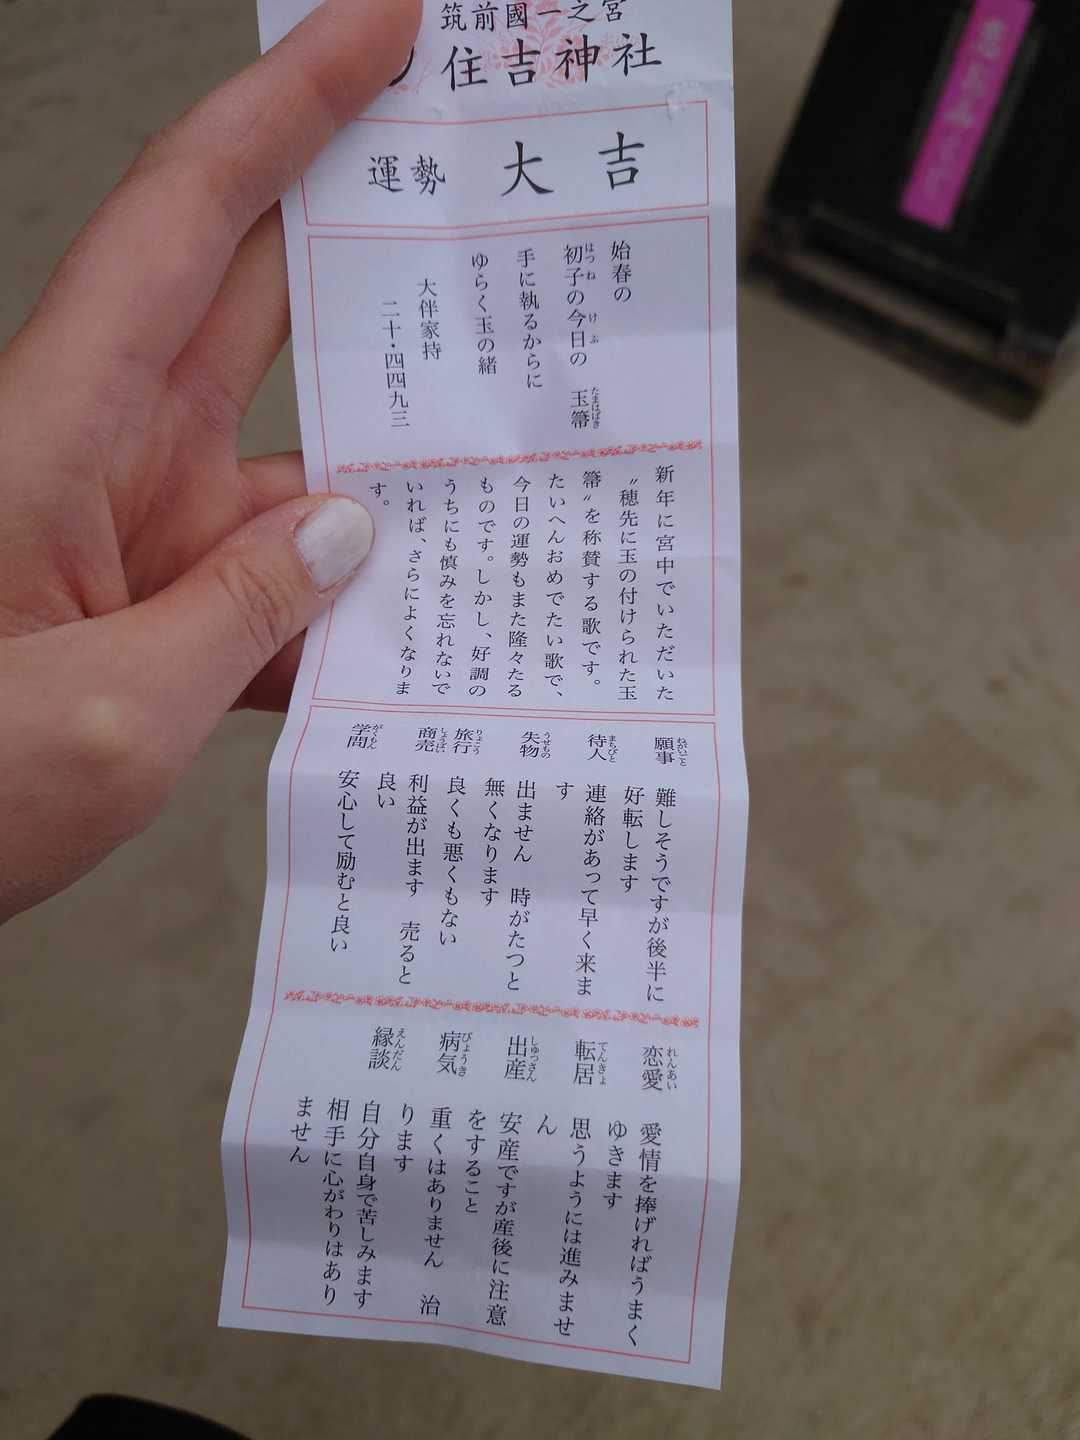 筑前國一之宮
住吉神社
運勢 大吉
始春の
初子の今日の 玉箒
はつね けふ たまはばき
手に執るからに
ゆらく玉の緒
大伴家持
二十・四四九三
新年に宮中でいただいた
〝穂先に玉の付けられた玉
箒〟を称賛する歌です。
たいへんおめでたい歌で、
今日の運勢もまた隆々たる
ものです。しかし、好調の
うちにも慎みを忘れないで
いれば、さらによくなりま
す。
願事 難しそうですが後半に
ねがいごと
好転します
待人 連絡があって早く来ま
まちびと
す
失物 出ません 時がたつと
うせもの
無くなります
旅行 良くも悪くもない
りょこう
商売 利益が出ます 売ると
しょうばい
良い
学問 安心して励むと良い
がくもん
恋愛 愛情を捧げればうまく
れんあい
ゆきます
転居 思うようには進みませ
てんきょ
ん
出産 安産ですが産後に注意
しゅっさん
をすること
病気 重くはありません 治
びょうき
ります
縁談 自分自身で苦しみます
えんだん
相手に心がわりはあり
ません